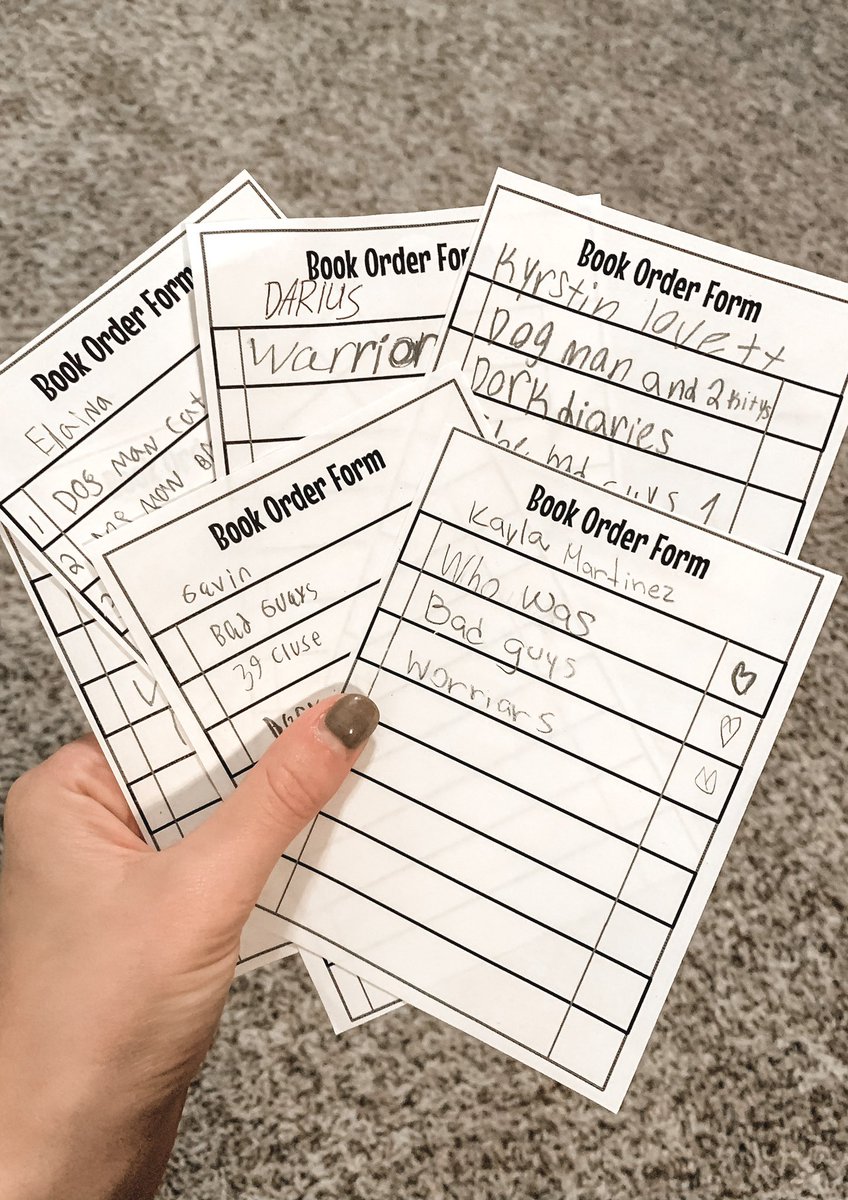 Book Order Form
Elaina
1 Dog Man Cat
2 Man
Book Order
DARIUS
Warrior
Book Order Form
Kyrstin lovett
Dog man and 2 kitys
Dork diaries
the bad guys 1
Book Order Form
Gavin
Bad Guays
39 Cluse
Book Order Form
Kayla Martinez
Who was
Bad guys
Worriars